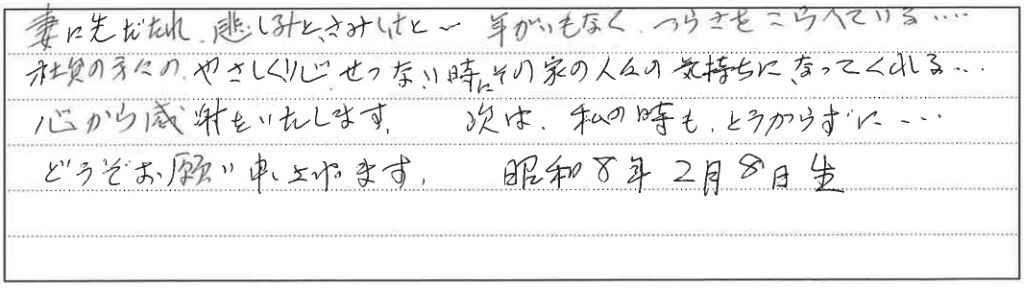 妻に先だたれ、悲しみと、さみしさと〜 年がいもなく、つらさをこらへている‥‥
社員の方々の、やさしい心、せつない時にその家の人々の気持ちになってくれる‥‥
心から感謝をいたします。 次は、私の時も、とうからずに‥‥
どうぞお願い申し上げます。 昭和8年2月8日生